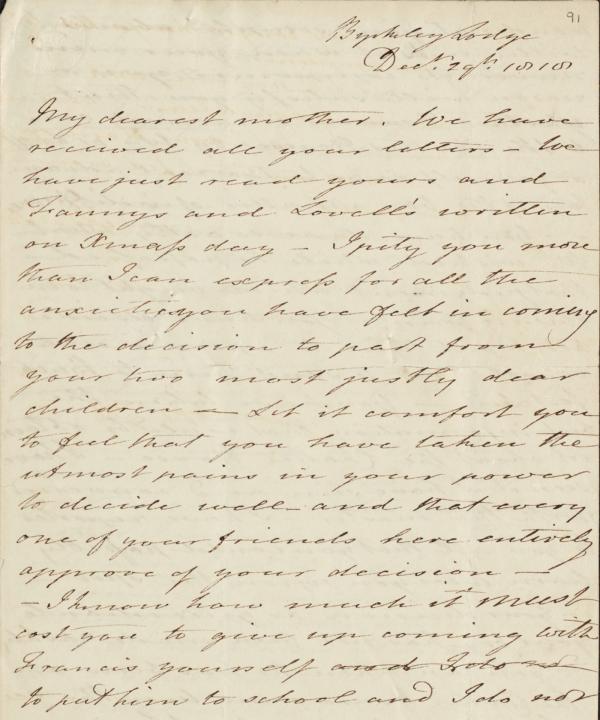 91
Byrkeley Lodge
Decr. 29th. 1818
My dearest mother. We have
received all your letters - We
have just read yours and
Fannys and Lovell's written
on Xmass day - I pity you more
than I can express for all the
anxiety you have felt in coming
to the decision to part from
your two most justly dear
children - Let it comfort you
to feel that you have taken the
utmost pains in your power
to decide well - and that every
one of your friends here entirely
approve of your decision -
- I know how much it must
cost you to give up coming with
Francis yourself and I do not
to put him to school and I do not